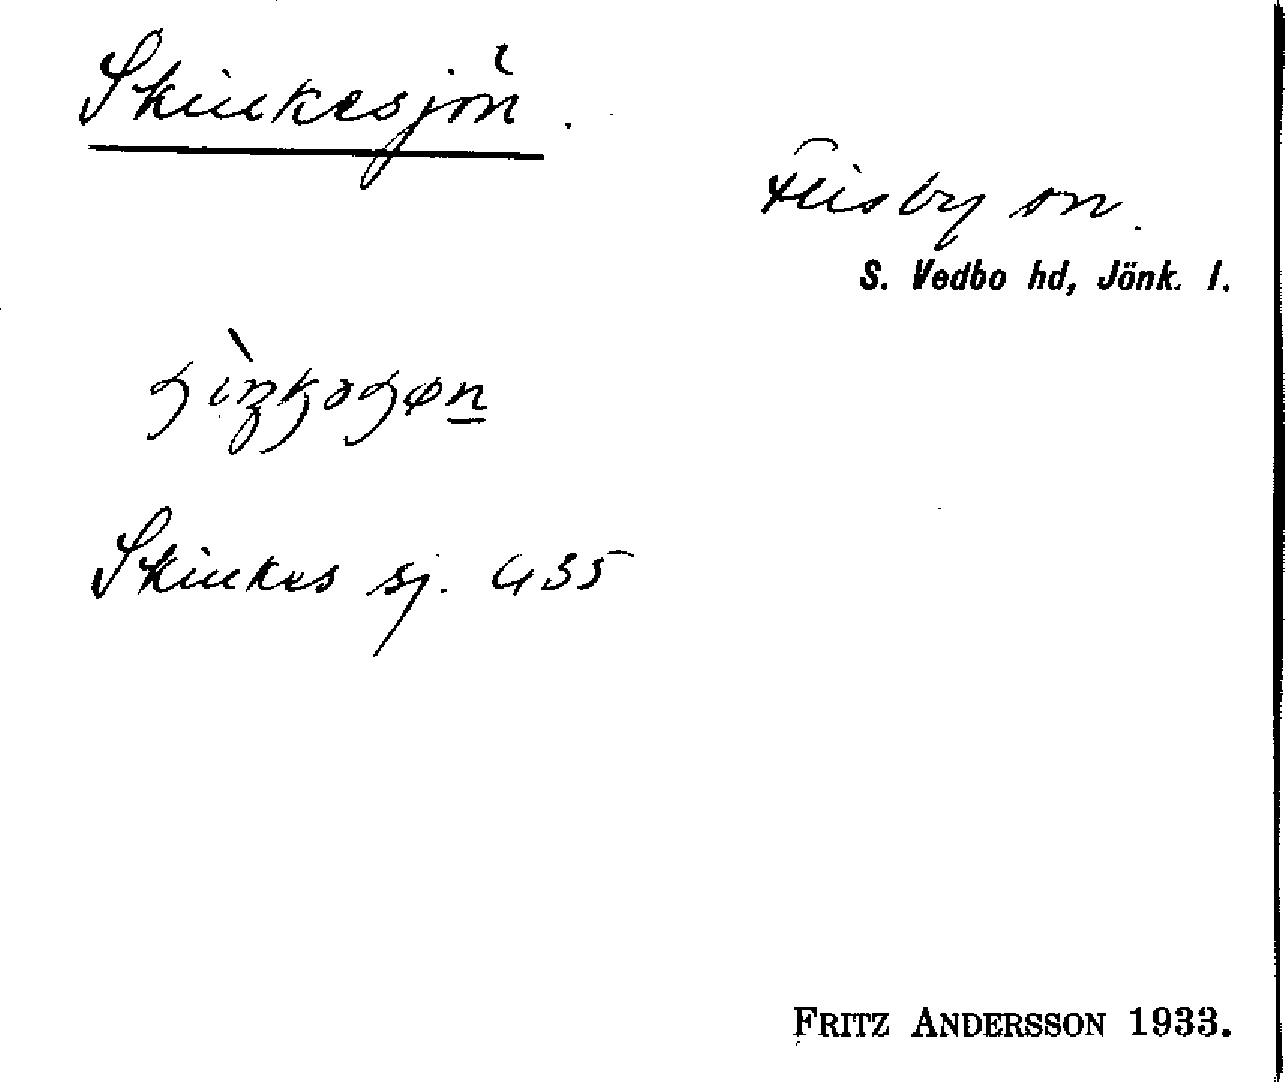 Skinkesjön.
Flisby sn.
S. Vedbo hd, Jönk. l.
Skinkes sj. 435
FRITZ ANDERSSON 1933.